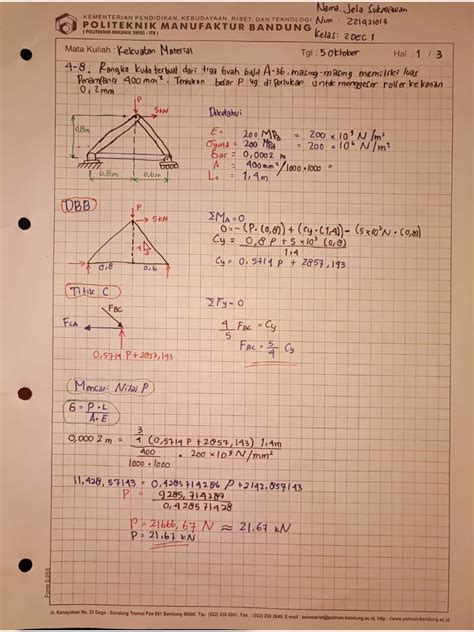 Nama: Jela Sukmawan
KEMENTERIAN PENDIDIKAN, KEBUDAYAAN, RISET, DAN TEKNOLOGI
POLITEKNIK MANUFAKTUR BANDUNG
( POLITEKNIK MEKANIK SWISS - ITB )
Nim : 221421013
Kelas: 2DEC1
Mata Kuliah : Kekuatan Material
Tgl : 5 Oktober
Hal. : 1 / 3
4-8. Rangka kuda terbuat dari tiga buah baja A-36 masing-masing memiliki luas
Penampang 400 mm². Tentukan besar P yg diperlukan untuk menggeser roller ke kanan
0,2 mm
P
5 kN
0,8m
0,8m
0,6m
Diketahui
E = 200 MPa = 200 × 10³ N/m²
= 200 MPa = 200 × 10⁶ N/m²
= 0,0002 m
A = 400 mm²/1000·1000 =
L₀ = 1,4 m
DBB
P
5 kN
0,8
0,6
ΣMA = 0
0 = -(P · (0,8)) + (Cy · (1,4)) - (5×10³N · (0,8)
Cy = 0,8 P + 5×10³ (0,8)
1,4
Cy = 0,5714 P + 2857,143
Titik C
FBC
FCA
0,5714 P + 2857,143
ΣFy = 0
4/5 FBC = Cy
FBC = 5/4 Cy
Mencari Nilai P
δ = P · L
A · E
0,000 2 m = 3/4 (0,5714 P + 2857,143) 1,4m
400/1000·1000 · 200 × 10⁹ N/mm²
11.428,57143 = 0,4285714286 P + 2142,857143
P = 9285,714287
0,428571428
P = 21666,67 N ≈ 21,67 kN
P = 21,67 kN
Form 0.05B
Jl. Kanayakan No. 21 Dago - Bandung Tromol Pos 851 Bandung 40008. Tlp.: (022) 250 0241, Fax.: (022) 250 2649, E-mail : sekretariat@polman-bandung.ac.id, http://www.polman-bandung.ac.id